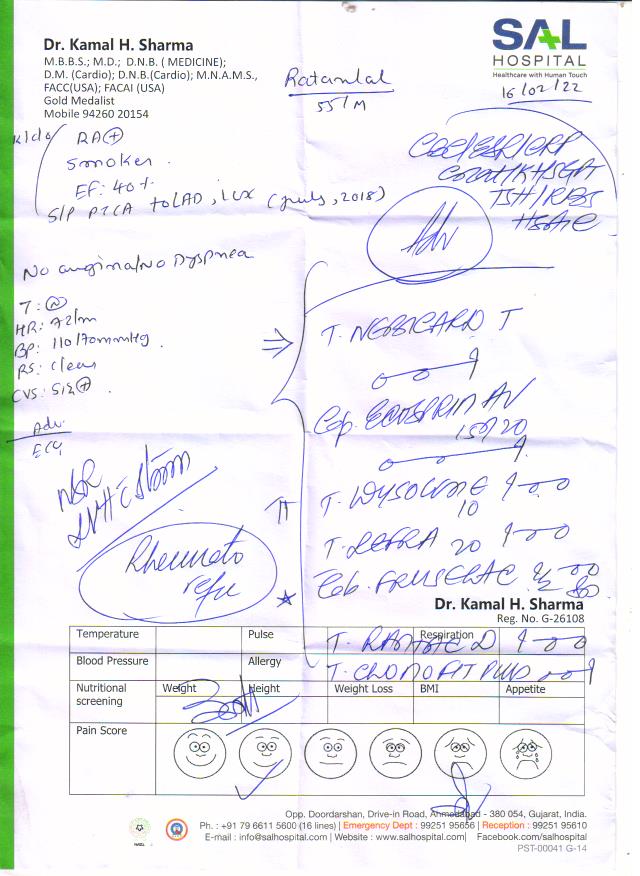 Dr. Kamal H. Sharma
M.B.B.S.; M.D.; D.N.B. ( MEDICINE);
D.M. (Cardio); D.N.B.(Cardio); M.N.A.M.S.,
FACC(USA); FACAI (USA)
Gold Medalist
Mobile 94260 20154
SAL
HOSPITAL
Healthcare with Human Touch
16/02/22
Ratanlal
55/M
K/c/o RA⊕
smoker
EF: 40%
S/P PTCA to LAD, LCX (July, 2018)
CBC/ESR/CRP
TSH/RBS
Adv
No angina/No Dyspnea
T: N
HR: 72/m
BP: 110/70mmHg
RS: Clear
CVS: S1S2⊕
Adv:
ECG
NSR
LVH C Strain
Rheumato
refer
T. NEBICARD T
Cap. ECOSPRIN AV
150/20
T. WYSOLONE 1-0-0
10
T. LEFRA 20 1-0-0
Tab. FRUSELAC 1/2-0-0
Dr. Kamal H. Sharma
Reg. No. G-26108
T. D 1-0-0
T. PLUS 0-0-1
Temperature Pulse Respiration
Blood Pressure Allergy
Nutritional screening Weight Height Weight Loss BMI Appetite
Pain Score
Opp. Doordarshan, Drive-in Road, Ahmedabad - 380 054, Gujarat, India.
Ph. : +91 79 6611 5600 (16 lines) | Emergency Dept : 99251 95656 | Reception : 99251 95610
E-mail : info@salhospital.com | Website : www.salhospital.com| Facebook.com/salhospital
PST-00041 G-14